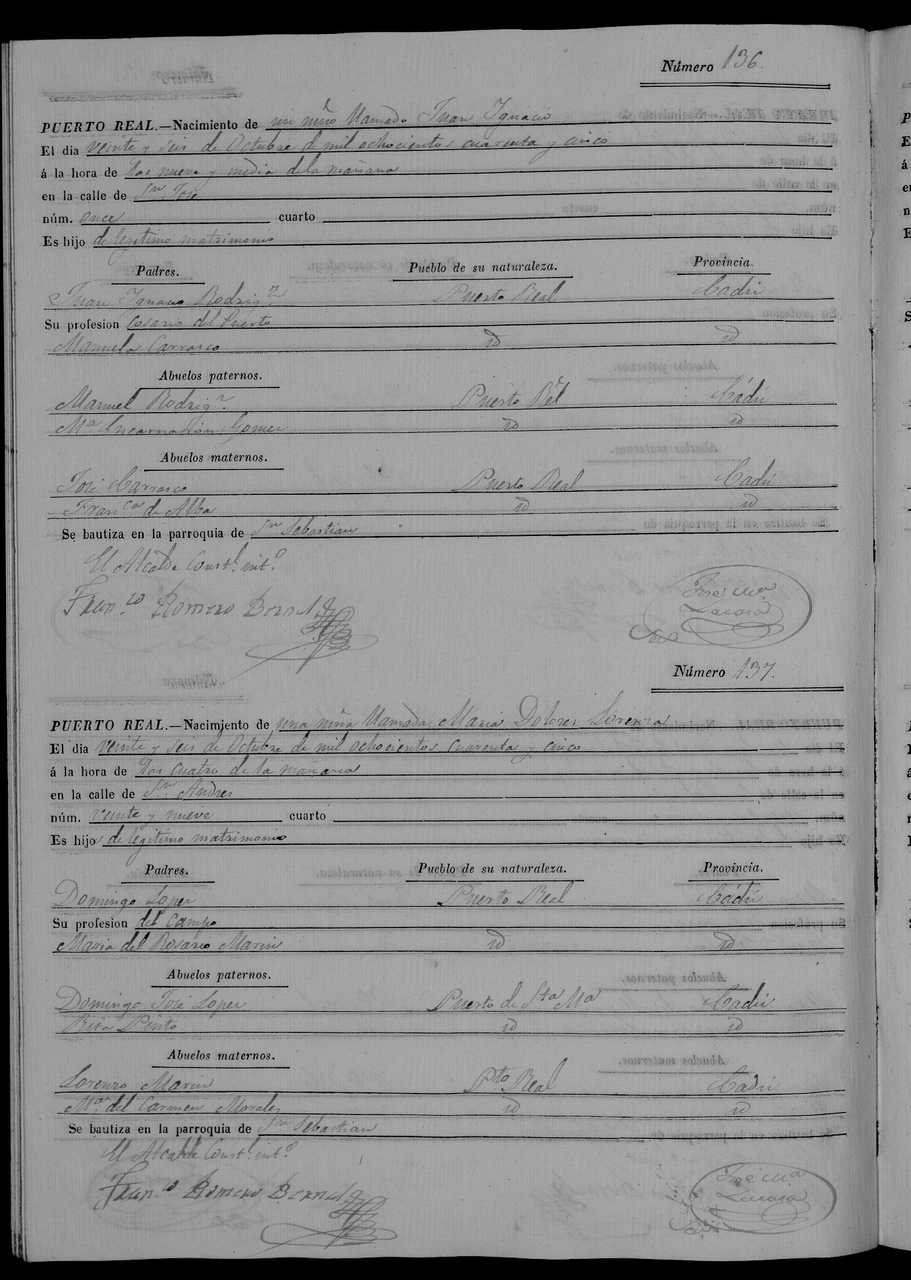 Número 136.
PUERTO REAL.—Nacimiento de un niño llamado Juan Ignacio
El dia veinte y seis de Octubre de mil ochocientos cuarenta y cinco
á la hora de las nueve y media de la mañana
en la calle de Sn José
núm. once cuarto
Es hijo de legitimo matrimonio
Padres. Pueblo de su naturaleza. Provincia.
Juan Ignacio Rodrigz Puerto Real Cadiz
Su profesion Cosario del Puerto
Manuela Carrasco id id
Abuelos paternos.
Manuel Rodrigz Puerto Rel Cádiz
Ma Encarnación Gomez id id
Abuelos maternos.
José Carrasco Puerto Real Cadiz
Franca de Alba id id
Se bautiza en la parroquia de Sn Sebastian
El Alcalde Constl. into
Franco Romero Bernal
José Ma
Srio
Número 137.
PUERTO REAL.—Nacimiento de una niña llamada Maria Dolores Lorenza
El dia veinte y seis de Octubre de mil ochocientos cuarenta y cinco
á la hora de las cuatro de la mañana
en la calle de Sn Andres
núm. veinte y nueve cuarto
Es hijo de legitimo matrimonio
Padres. Pueblo de su naturaleza. Provincia.
Domingo Lopez Puerto Real Cádiz
Su profesion del Campo
Maria del Rosario Marin id id
Abuelos paternos.
Domingo José Lopez Puerto de Sta Ma Cadiz
Rita Pinto id id
Abuelos maternos.
Lorenzo Marin Pto Real Cadiz
Ma del Carmen Morales id id
Se bautiza en la parroquia de Sn Sebastian
El Alcalde Constl. into
Franco Romero Bernal
José Ma